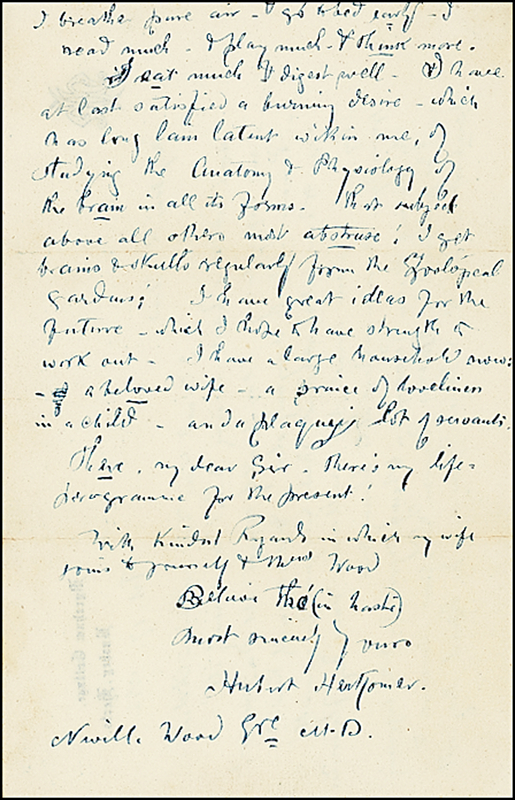 I breathe pure air - I go to bed early - I
read much - I play much - & think more.
I eat much & digest well - & I have
at last satisfied a burning desire - which
has long lain latent within me, of
studying the Anatomy & Physiology of
the brain in all its forms. That subject
above all others most abstruse! I get
brains & skulls regularly from the Zoological
Gardens! I have great ideas for the
future - which I hope to have strength to
work out - I have a large household now:
- a beloved wife - a praise of loveliness
in a child - and a plaguey lot of servants.
There, my dear Sir - there's my life-
programme for the present!
With kindest Regards in which my wife
joins to yourself & Mrs Wood
Believe me (in haste)
Most sincerely yours
Hubert Herkomer.
Neville Wood Esqre M.D.